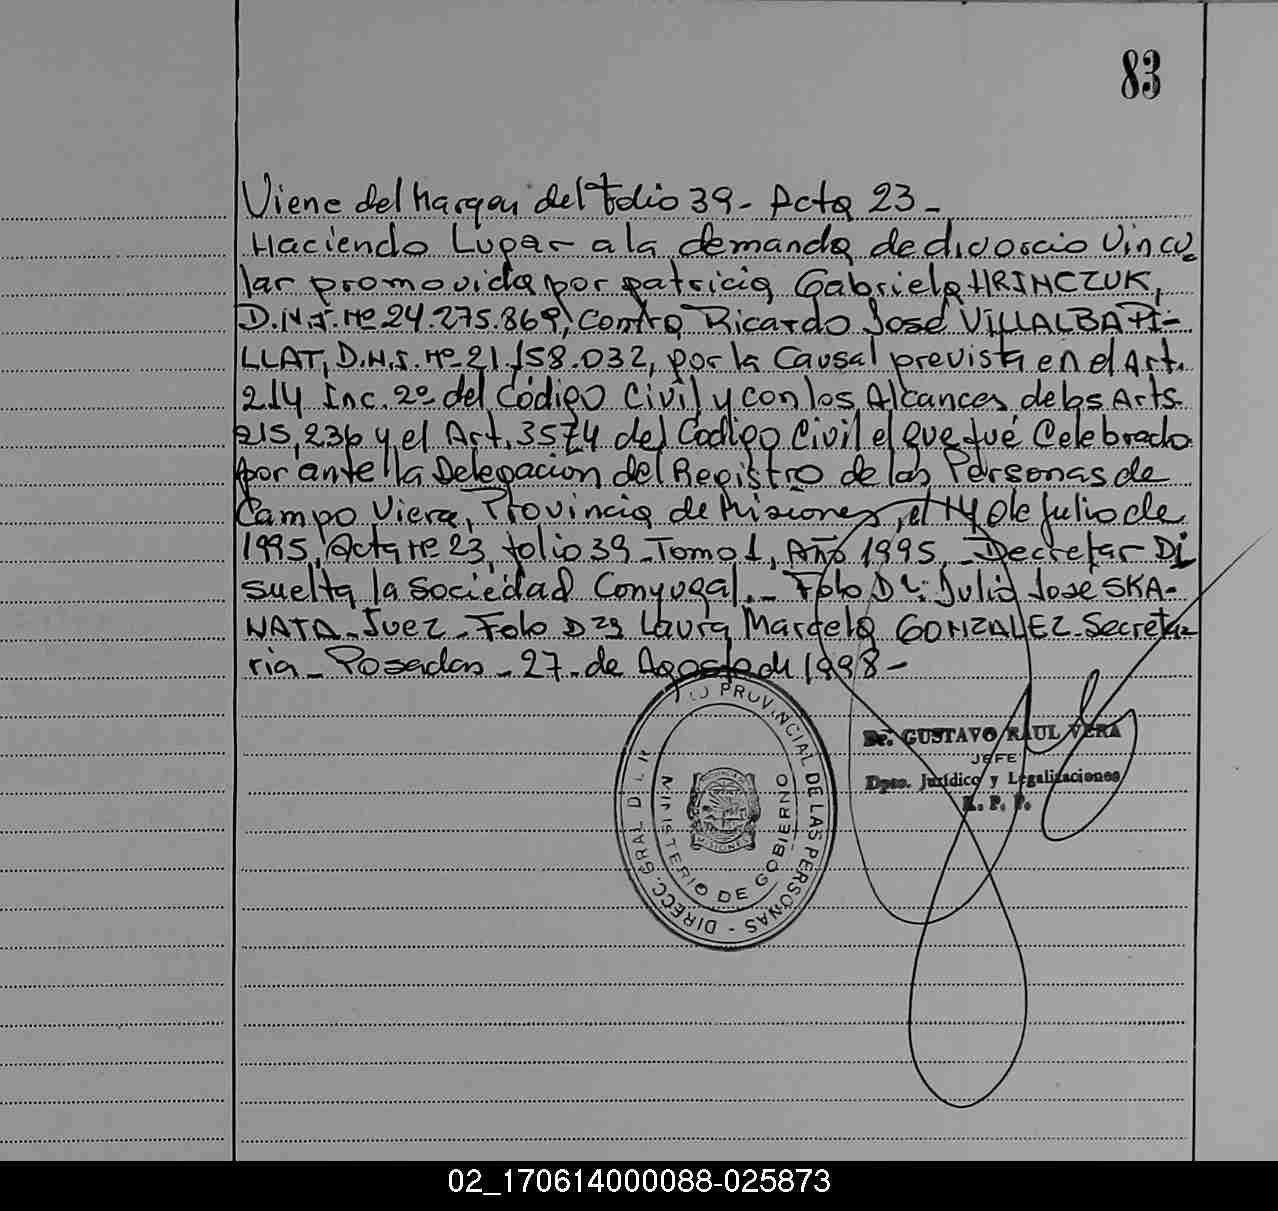 83
Viene del Margen del folio 39 - Acta 23 -
Haciendo Lugar a la demanda de divorcio Vincu
lar promovida por patricia Gabriela HRINCZUK,
D.N.I. Nº 24.275.869, Contra Ricardo José VILLALBA PI-
LLAT, D.N.I. Nº 21.158.032, por la Causal prevista en el Art.
214 Inc. 2º del Código Civil y con los Alcances de los Arts.
215, 236 y el Art. 3574 del Codigo Civil el que fué Celebrado
por ante la Delegacion del Registro de las Personas de
Campo Viera, Provincia de Misiones, el 14 de Julio de
1995, Acta Nº 23, folio 39 - Tomo 1, Año 1995, - Decretar Di
suelta la Sociedad Conyugal. - Fdo Dr: Julio Jose SKA-
NATA - Juez - Fdo Dra Laura Marcela GONZALEZ - Secreta
ria - Posadas - 27 - de Agosto de 1998 -
Dr. GUSTAVO RAUL VERA
JEFE
Dpto. Jurídico y Legalizaciones
R. P. P.
DIRECC. GRAL DEL R PROVINCIAL DE LAS PERSONAS -
MINISTERIO DE GOBIERNO
MISIONES
02_170614000088-025873